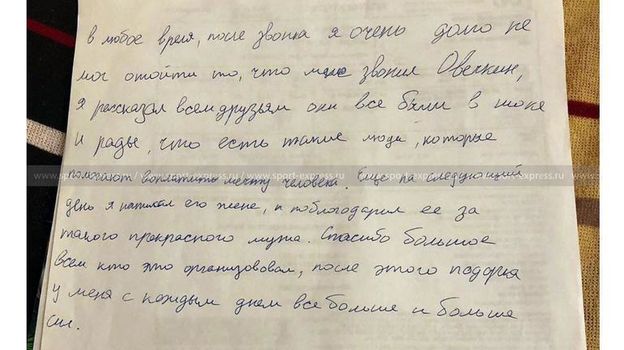 в любое время, после звонка я очень долго не
мог отойти то, что мне звонил Овечкин,
я рассказал всем друзьям они все были в шоке
и рады, что есть такие люди, которые
помогают воплатить мечту человека. Еще на следующий
день я написал его жене, и поблогодарил ее за
такого прекрасного мужа. Спасибо большое
всем кто это организововал, после этого подарка
у меня с каждым днем все больше и больше
сил.
www.sport-express.ru / www.sport-express.ru / www.sport-express.ru